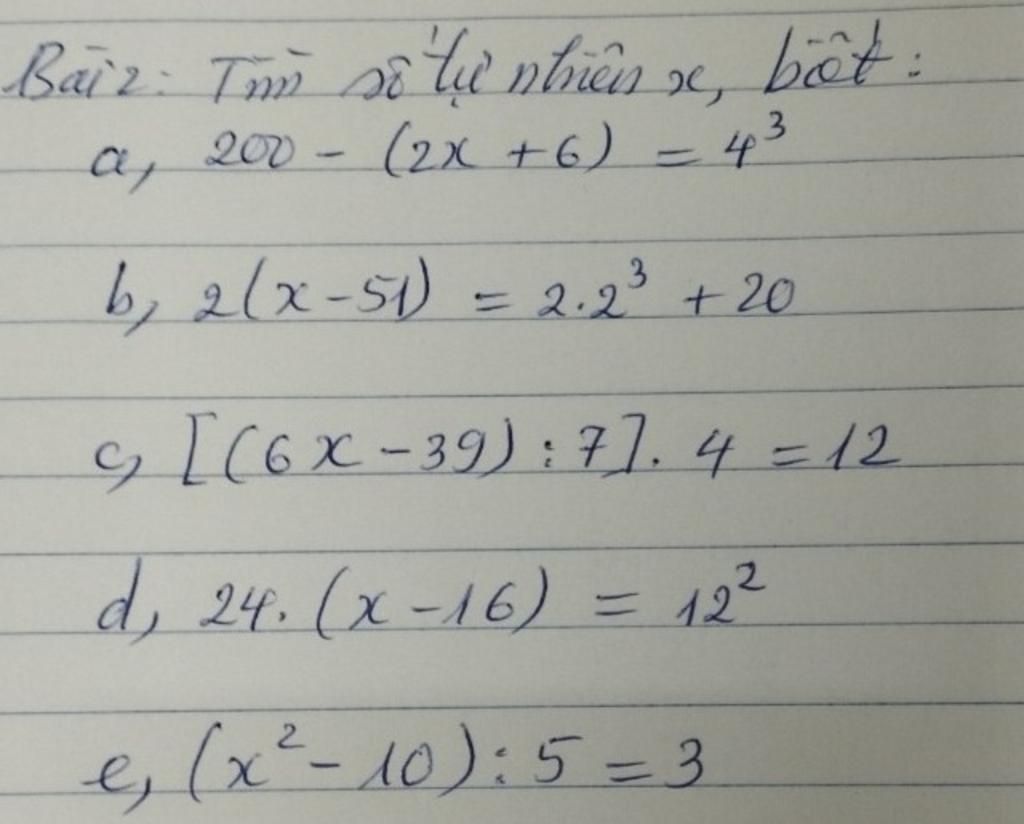 Bài 2: Tìm số tự nhiên x, biết:
a, 200 - (2x + 6) = 4³
b, 2(x - 51) = 2.2³ + 20
c, [(6x - 39) : 7]. 4 = 12
d, 24. (x - 16) = 12²
e, (x² - 10) : 5 = 3